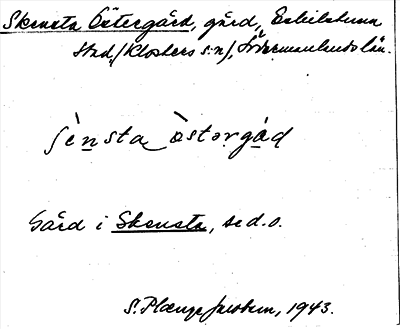 Skensta Östergård, gård, Eskilstuna
stad, (Klosters s:n), Södermanlands län.
sènsta òstərgåd
Gård i Skensta, se d.o.
S. Plænge Jacobson, 1943.